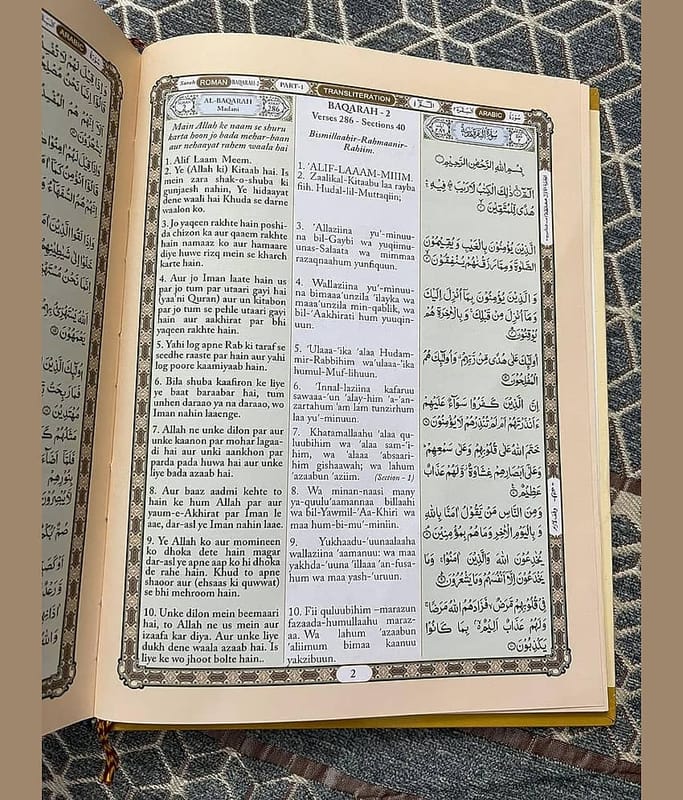 Surah ROMAN BAQARAH 2
PART-1
TRANSLITERATION
ARABIC
2
AL-BAQARAH
Madani
286
Main Allah ke naam se shuru
karta hoon jo bada mehar-baan
aur nehaayat rahem waala hai
1. Alif Laam Meem.
2. Ye (Allah ki) Kitaab hai. Is
mein zara shak-o-shuba ki
gunjaesh nahin, Ye hidaayat
dene waali hai Khuda se darne
waalon ko.
3. Jo yaqeen rakhte hain poshi-
da chizon ka aur qaaem rakhte
hain namaaz ko aur hamaare
diye huwe rizq mein se kharch
karte hain.
4. Aur jo Iman laate hain us
par jo tum par utaari gayi hai
(yaa'ni Quran) aur un kitabon
par jo tum se pehle utaari gayi
hain aur aakhirat par bhi
yaqeen rakhte hain.
5. Yahi log apne Rab ki taraf se
seedhe raaste par hain aur yahi
log poore kaamiyaab hain.
6. Bila shuba kaafiron ke liye
ye baat baraabar hai, tum
unhen daraao ya na daraao, wo
Iman nahin laaenge.
7. Allah ne unke dilon par aur
unke kaanon par mohar lagaa-
di hai aur unki aankhon par
parda pada huwa hai aur unke
liye bada azaab hai.
8. Aur baaz aadmi kehte to
hain ke hum Allah par aur
yaum-e-Akhirat par Iman le
aae, dar-asl ye Iman nahin laae.
9. Ye Allah ko aur momineen
ko dhoka dete hain magar
dar-asl ye apne aap ko hi dhoka
de rahe hain. Khud to apne
shaoor aur (ehsaas ki quwwat)
se bhi mehroom hain.
10. Unke dilon mein beemaari
hai, to Allah ne us mein aur
izaafa kar diya. Aur unke liye
dukh dene waala azaab hai. Is
liye ke wo jhoot bolte hain..
BAQARAH - 2
Verses 286 - Sections 40
Bismillaahir-Rahmaanir-
Rahiim.
1. 'ALIF-LAAAM-MIIIM.
2. Zaalikal-Kitaabu laa rayba
fiih. Hudal-lil-Muttaqiin;
3. 'Allaziina yu'-minuu-
na bil-Gaybi wa yuqiimu-
unas-Salaata wa mimmaa
razaqnaahum yunfiquun.
4. Wallaziina yu'-minuu-
na bimaaa'unzila 'ilayka wa
maaa'unzila min-qablik, wa
bil-'Aakhirati hum yuuqin-
uun.
5. 'Ulaaa-'ika 'alaa Hudam-
mir-Rabbihim wa'ulaaa-'ika
humul-Muf-lihuun.
6. 'Innal-laziina kafaruu
sawaaa-'un 'alay-him 'a-'an-
zartahum 'am lam tunzirhum
laa yu'-minuun.
7. Khatamallaahu 'alaa qu-
luubihim wa 'alaa sam-'i-
him, wa 'alaaa 'absaari-
him gishaawah; wa lahum
'azaabun 'aziim. (Section - 1)
8. Wa minan-naasi many
ya-quulu'aamannaa billaahi
wa bil-Yawmil-'Aa-Khiri wa
maa hum-bi-mu'-miniin.
9. Yukhaadu-'uunaalaaha
wallaziina 'aamanuu: wa maa
yakhda-'uuna 'illaaa 'an-fusa-
hum wa maa yash-'uruun.
10. Fii quluubihim –marazun
fazaada-humullaahu maraz-
aa. Wa lahum 'azaabun
'aliimum bimaa kaanuu
yakzibuun.
سورة البقرة
بِسْمِ اللهِ الرَّحْمٰنِ الرَّحِيْمِ
الٓمّٓ ذٰلِكَ الْكِتٰبُ لَا رَيْبَ فِيْهِ
هُدًى لِّلْمُتَّقِيْنَ
الَّذِيْنَ يُؤْمِنُوْنَ بِالْغَيْبِ وَيُقِيْمُوْنَ
الصَّلٰوةَ وَمِمَّا رَزَقْنٰهُمْ يُنْفِقُوْنَ
وَالَّذِيْنَ يُؤْمِنُوْنَ بِمَا اُنْزِلَ اِلَيْكَ
وَمَا اُنْزِلَ مِنْ قَبْلِكَ وَبِالْاٰخِرَةِ هُمْ
يُوْقِنُوْنَ
اُولٰٓئِكَ عَلٰى هُدًى مِّنْ رَّبِّهِمْ وَاُولٰٓئِكَ هُمُ
الْمُفْلِحُوْنَ
اِنَّ الَّذِيْنَ كَفَرُوْا سَوَآءٌ عَلَيْهِمْ
ءَاَنْذَرْتَهُمْ اَمْ لَمْ تُنْذِرْهُمْ لَا يُؤْمِنُوْنَ
خَتَمَ اللهُ عَلٰى قُلُوْبِهِمْ وَعَلٰى سَمْعِهِمْ
وَعَلٰى اَبْصَارِهِمْ غِشَاوَةٌ وَّلَهُمْ عَذَابٌ
عَظِيْمٌ
وَمِنَ النَّاسِ مَنْ يَّقُوْلُ اٰمَنَّا بِاللهِ
وَبِالْيَوْمِ الْاٰخِرِ وَمَا هُمْ بِمُؤْمِنِيْنَ
يُخٰدِعُوْنَ اللهَ وَالَّذِيْنَ اٰمَنُوْا وَمَا
يَخْدَعُوْنَ اِلَّا اَنْفُسَهُمْ وَمَا يَشْعُرُوْنَ
فِيْ قُلُوْبِهِمْ مَّرَضٌ فَزَادَهُمُ اللهُ مَرَضًا
وَلَهُمْ عَذَابٌ اَلِيْمٌ بِمَا كَانُوْا
يَكْذِبُوْنَ
2
ARABIC